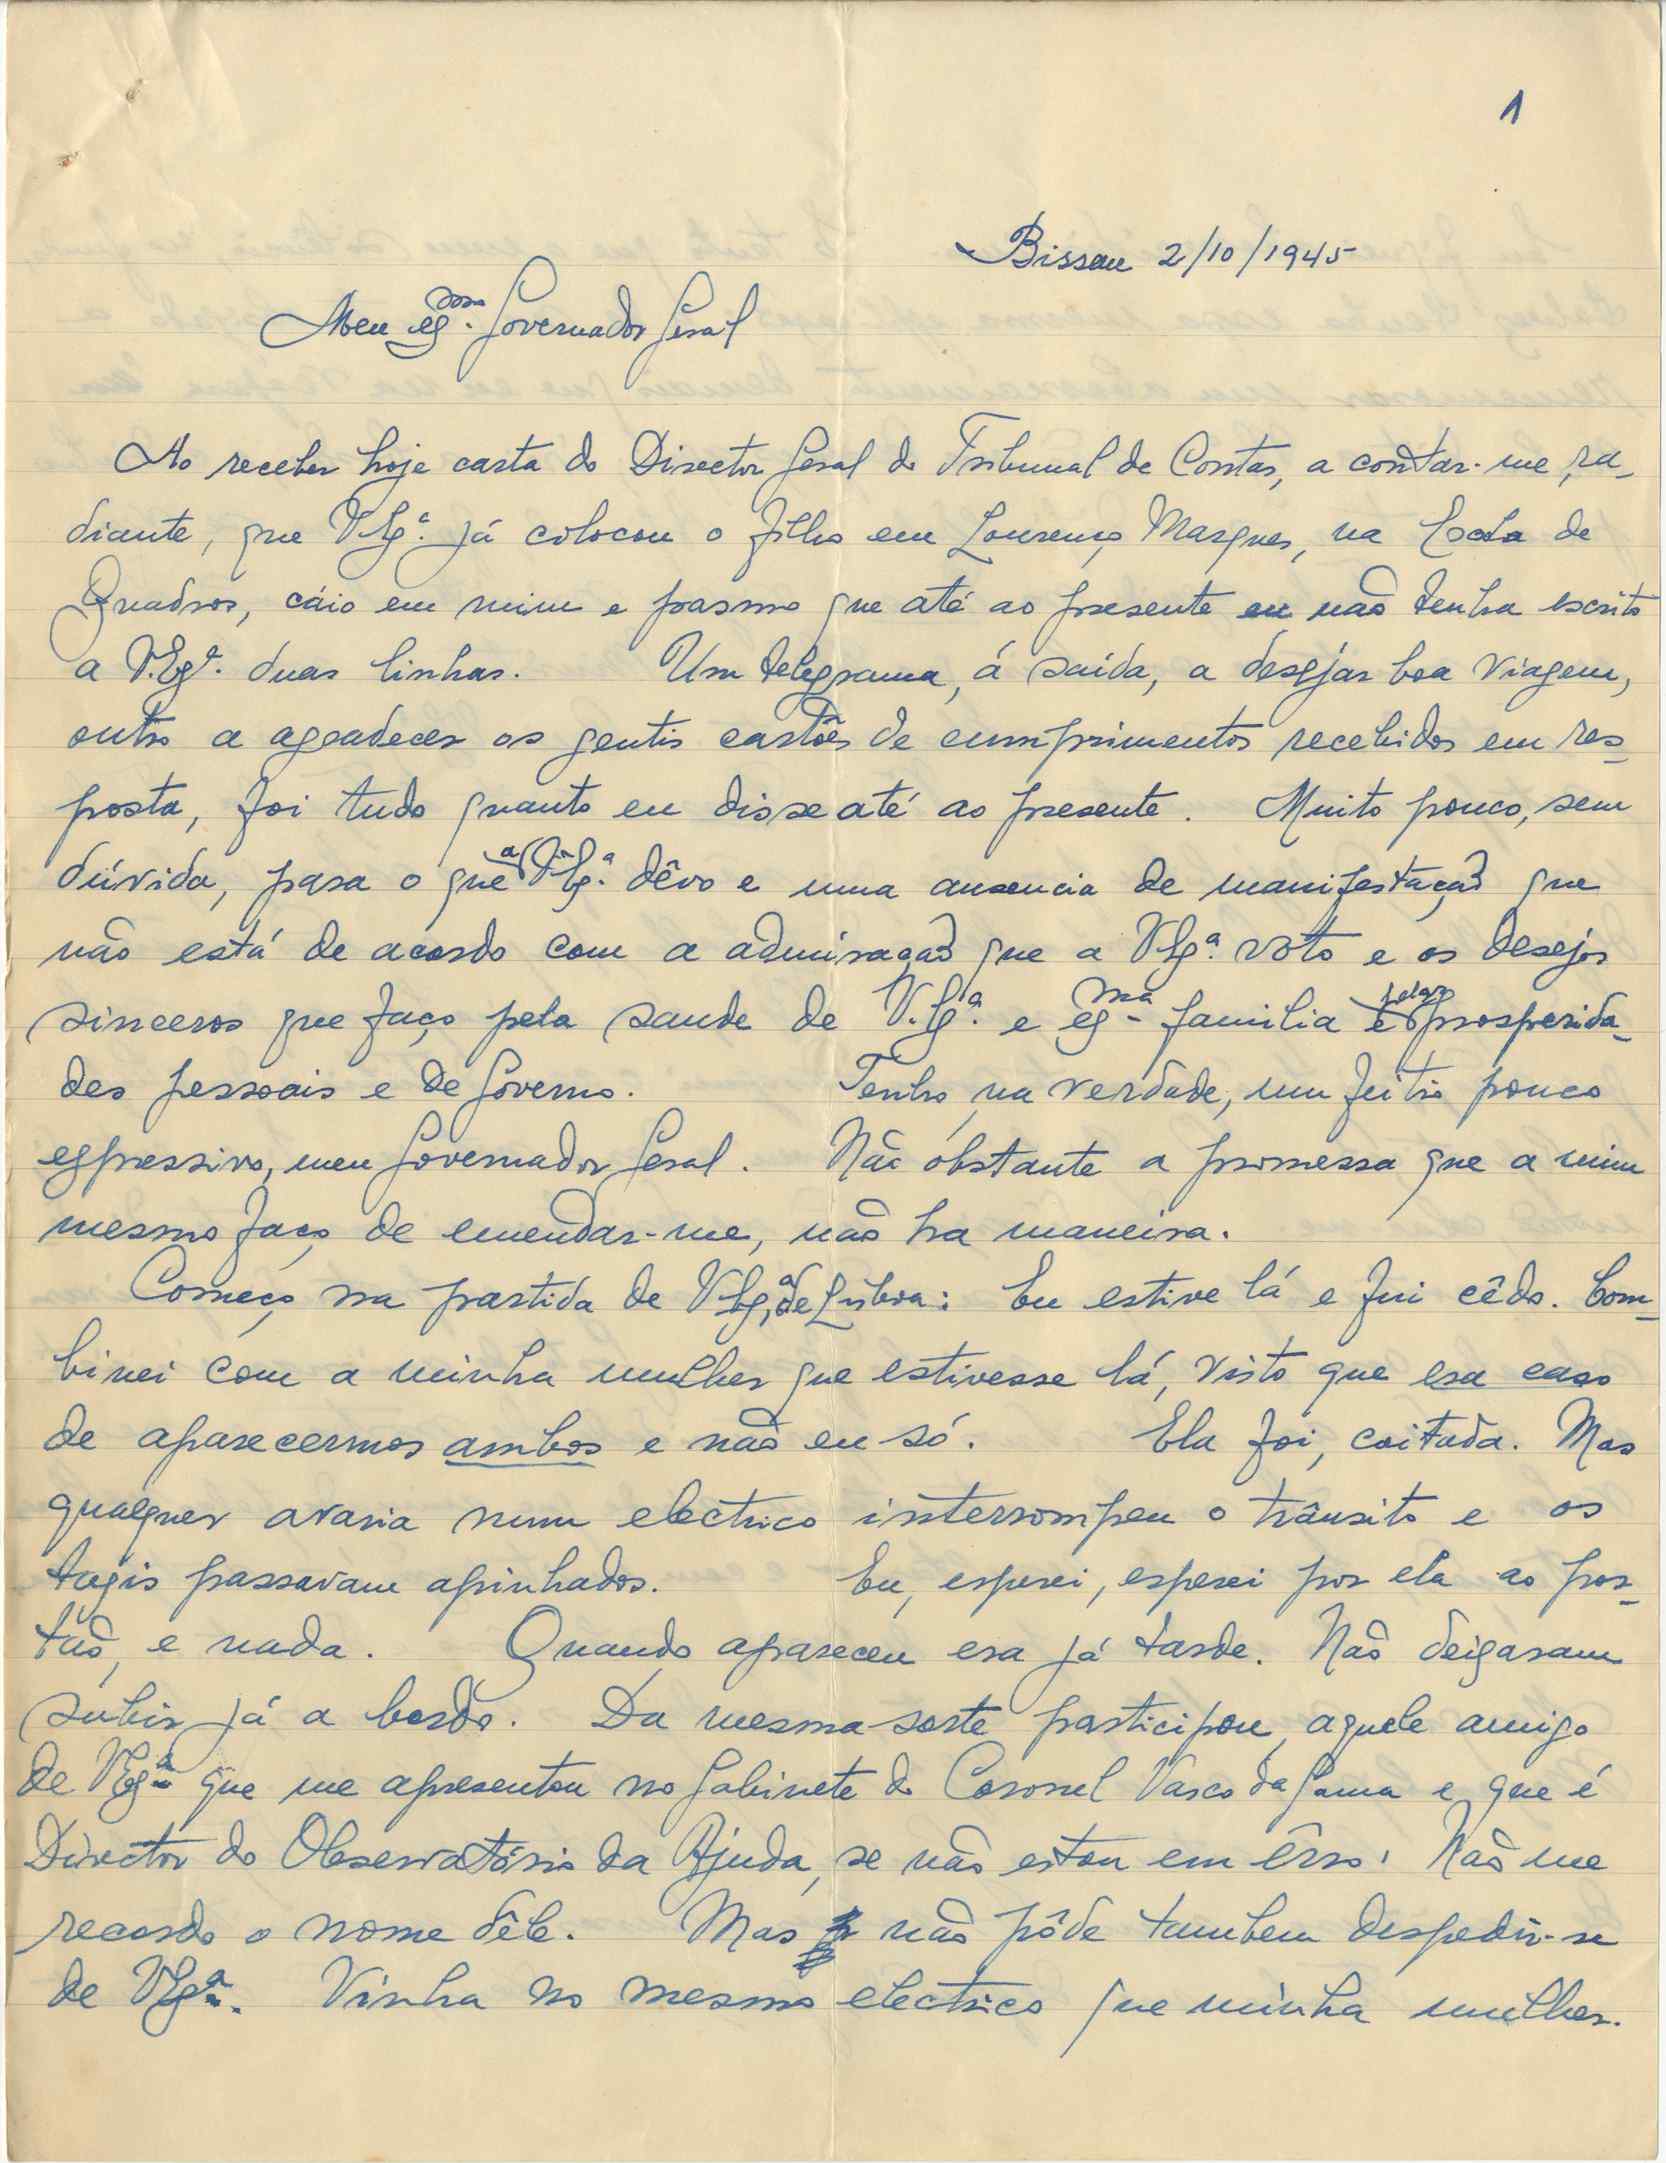 1
Bissau 2/10/1945
Meu exmo. Governador Geral
Ao receber hoje carta do Director Geral do Tribunal de Contas, a contar-me, ra-
diante, que V.Exª. já colocou o filho em Lourenço Marques, na Escola de
Quadros, cáio em mim e pasmo que até ao presente eu não tenha escrito
a V.Exª. duas linhas. Um telegrama, á saída, a desejar boa viagem,
outro a agradecer os gentis cartões de cumprimentos recebidos em res-
posta, foi tudo quanto eu disse até ao presente. Muito pouco, sem
dúvida, para o que a V.Exª. dêvo e uma ausencia de manifestação que
não está de acordo com a admiração que a V.Exª. voto e os desejos
sinceros que faço pela saude de V.Exª. e exma familia e pelas prosperida-
des pessoais e de Governo. Tenho, na verdade, um feitio pouco
expressivo, meu Governador Geral. Não obstante a promessa que a mim
mesmo faço de emendar-me, não ha maneira.
Começo na partida de V.Exª, de Lisboa: Eu estive lá e fui cêdo. Com-
binei com a minha mulher que estivesse lá, visto que era caso
de aparecermos ambos e não eu só. Ela foi, coitada. Mas
qualquer avaria num electrico interrompeu o trânsito e os
taxis passavam apinhados. Eu, esperei, esperei por ela ao por-
tão, e nada. Quando apareceu era já tarde. Não deixaram
subir já a bordo. Da mesma sorte participou, aquele amigo
de V.Exª que me apresentou no Gabinete do Coronel Vasco da Gama e que é
Director do Observatório da Ajuda, se não estou em êrro. Não me
recordo o nome dêle. Mas não pôde tambem despedir-se
de V.Exª. Vinha no mesmo electrico que minha mulher.